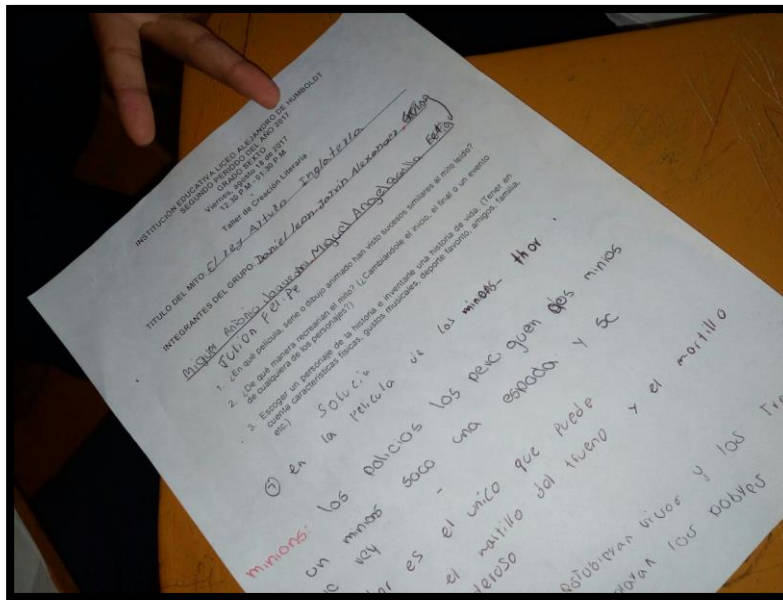 INSTITUCIÓN EDUCATIVA LICEO ALEJANDRO DE HUMBOLDT
SEGUNDO PERIODO DEL AÑO 2017
GRADO SEXTO
Viernes, agosto 18 de 2017
12:30 P.M - 01:30 P.M
Taller de Creación Literaria
TITULO DEL MITO: El rey Arturo Inglaterra
INTEGRANTES DEL GRUPO: Daniel leon Alexander
Miguel Antonio Miguel Angel
Julián Felipe
1. ¿En qué película, serie o dibujo animado han visto sucesos similares al mito leído?
2. ¿De qué manera recrearían el mito? (¿Cambiándole el inicio, el final o un evento
de cualquiera de los personajes?)
3. Escoger un personaje de la historia e inventarle una historia de vida. (Tener en
cuenta características físicas, gustos musicales, deporte favorito, amigos, familia,
etc.)
① en la pelicula de los thor.
minions: los policios los perciguen dos minios
un minons saco una espada y se
rey
es el unico que puede
el martillo del trueno y el martillo
vivos y los
los pobres